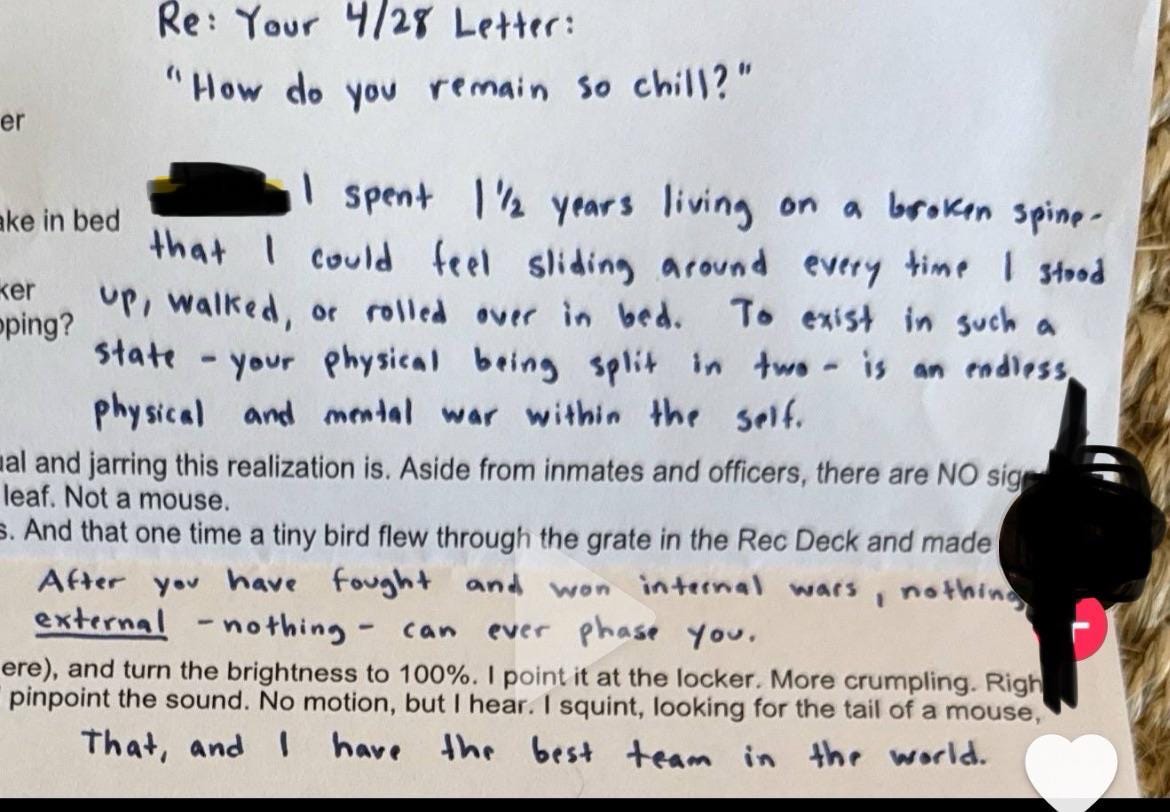 Re: Your 4/28 Letter:
"How do you remain so chill?"
er
I spent 1 1/2 years living on a broken spine-
ake in bed
that I could feel sliding around every time I stood
ker
up, walked, or rolled over in bed. To exist in such a
pping?
state - your physical being split in two - is an endless
physical and mental war within the self.
ual and jarring this realization is. Aside from inmates and officers, there are NO sig
leaf. Not a mouse.
s. And that one time a tiny bird flew through the grate in the Rec Deck and made
After you have fought and won internal wars, nothing
external - nothing - can ever phase you.
ere), and turn the brightness to 100%. I point it at the locker. More crumpling. Righ
pinpoint the sound. No motion, but I hear. I squint, looking for the tail of a mouse,
That, and I have the best team in the world.